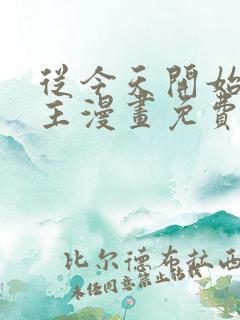 從今天開始
王漫畫免費
比尔德布拉西
未任同意禁止転載